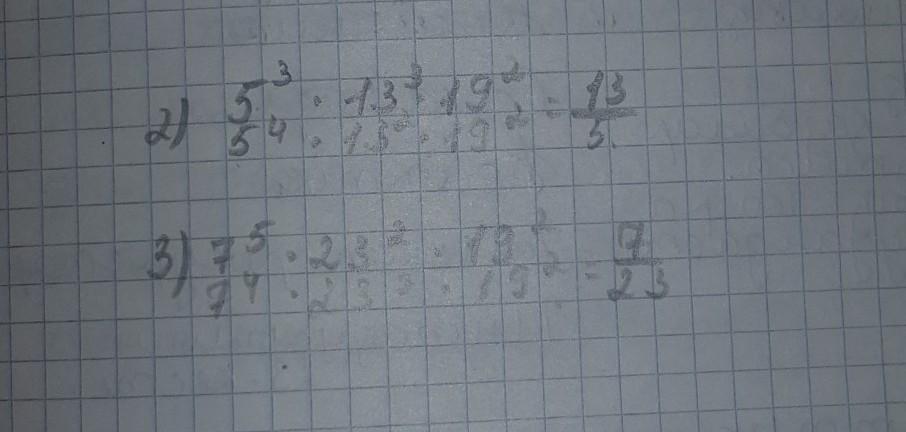 2) 5³ · 13³ · 19² = 13
5⁴ · 13² · 19² 5
3) 7⁵ · 23² · 19² = 7
7⁴ · 23³ · 19² 23